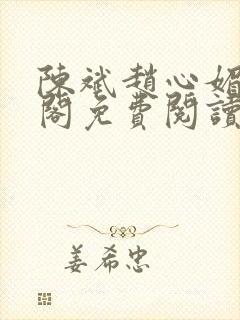 陳斌趙心媚
閣免費閱讀
姜希忠